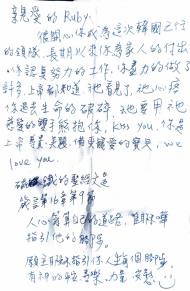 親愛的 Ruby:
很開心你成為這次韓國之行
的領隊,長期以來你為家人的付出
你認真努力的工作,你盡力的做了
許多,上帝都知道,祂看見,祂心疼
你過去生命的破碎,祂要用祂
慈愛的雙手擁抱你,kiss you,你是
上帝 美麗 寶貝,we
love you.
的聖經文是
箴言16章第9節
人心籌算自己的道路,惟耶和華
指引他的腳步。
願主耶穌指引你人生每個腳步
有神的 喜樂、力量、安慰